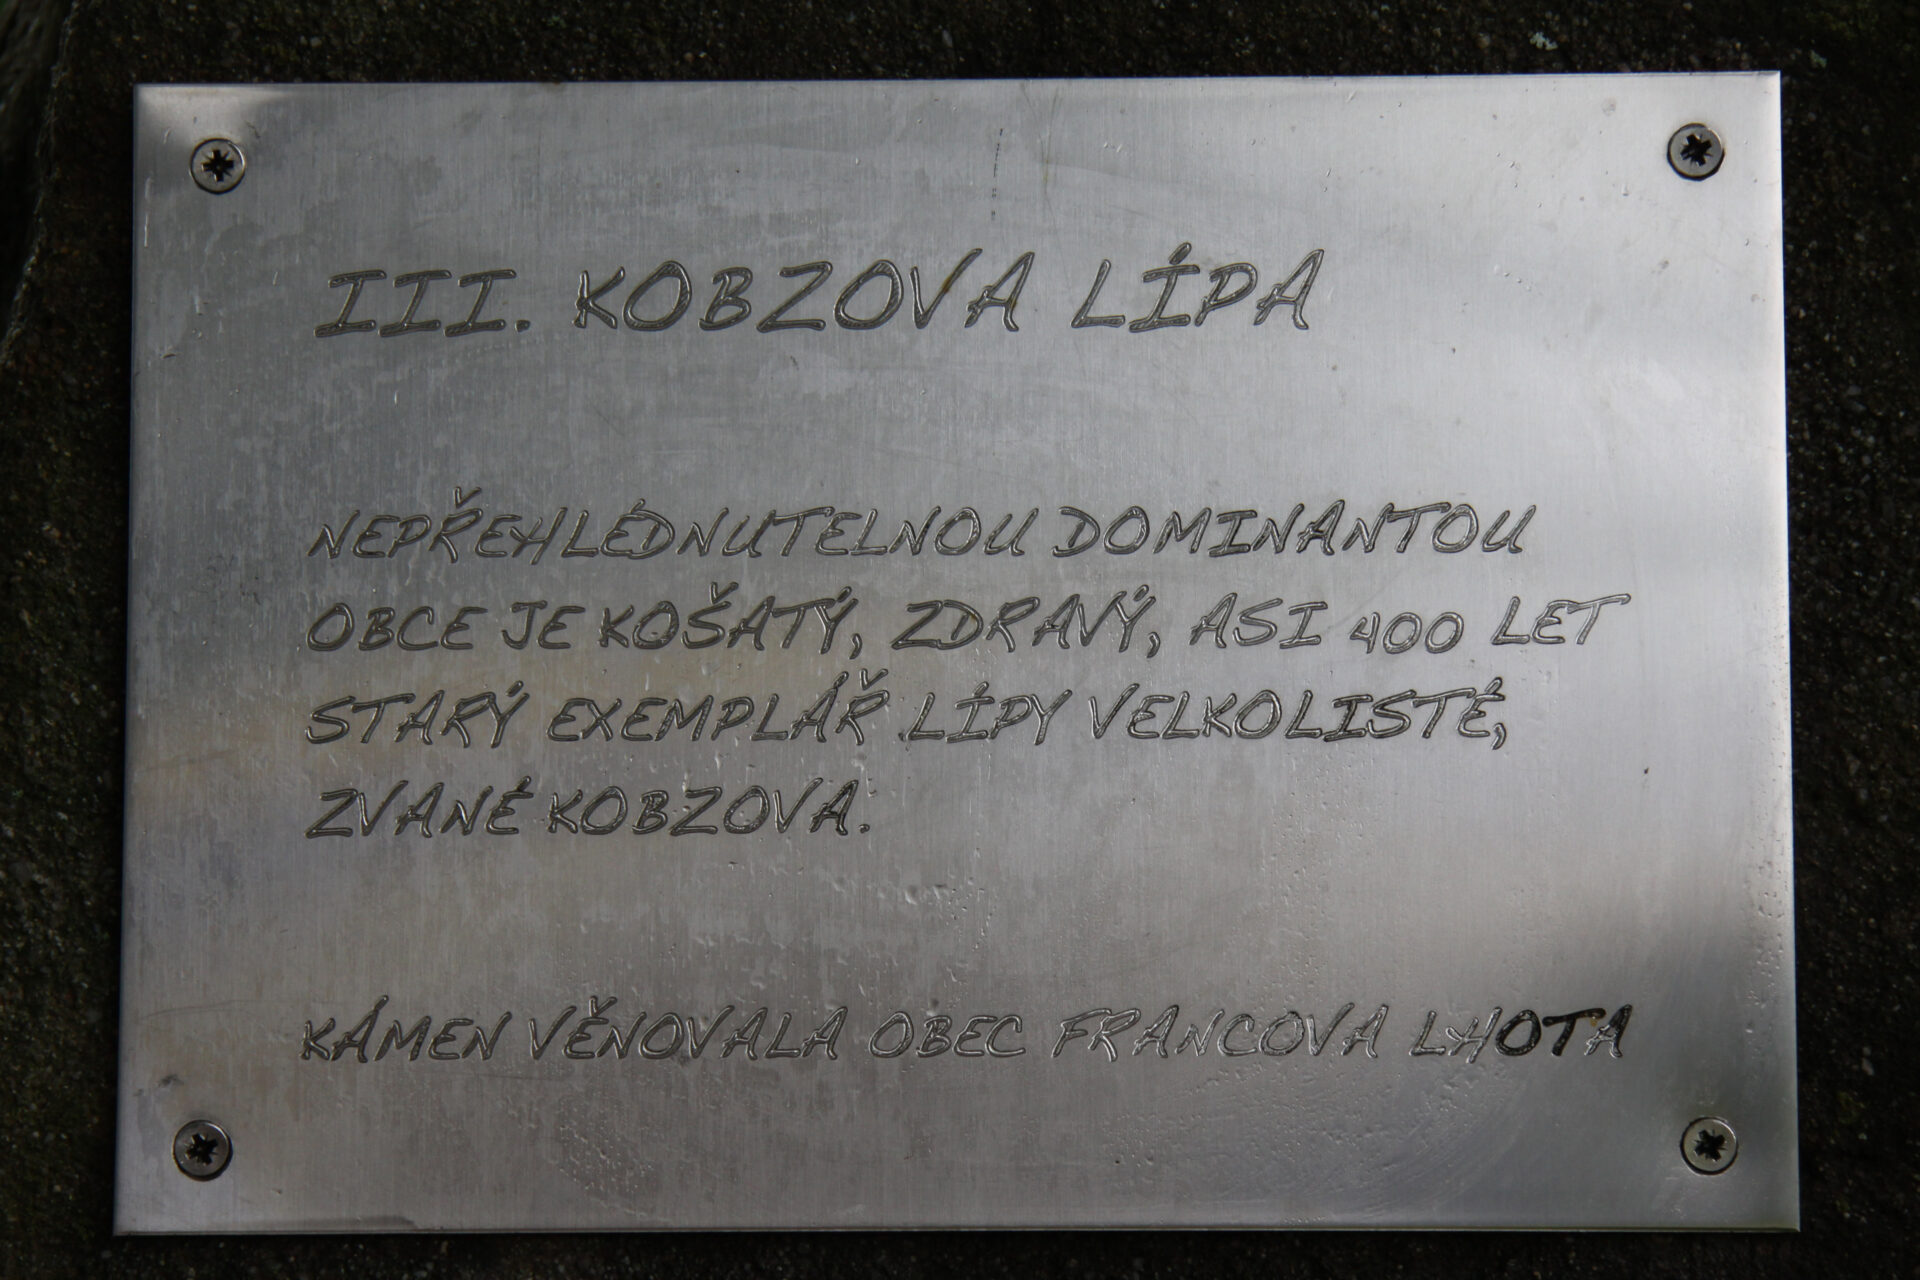 III. KOBZOVA LÍPA
NEPŘEHLÉDNUTELNOU DOMINANTOU
OBCE JE KOŠATÝ, ZDRAVÝ, ASI 400 LET
STARÝ EXEMPLÁŘ LÍPY VELKOLISTÉ,
ZVANÉ KOBZOVA.
KÁMEN VĚNOVALA OBEC FRANCOVA LHOTA